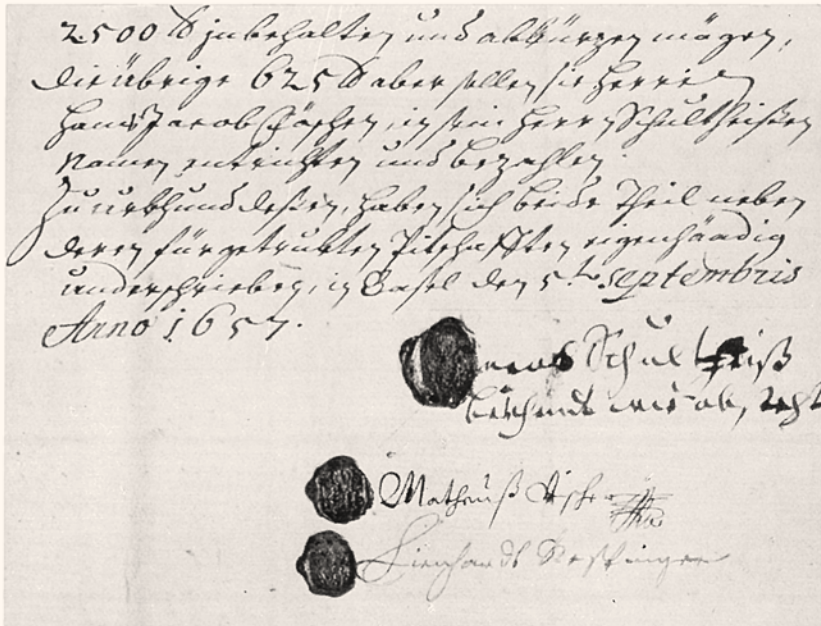 2500 ℔ inbehalten und abkürtzen mögen,
die übrige 625 ℔ aber sollen sie Herren
Hans Jacob Fäschen, in sein Herrn Schultheissen
Namen entrichten und bezahlen.
Zu urkhund dessen, haben sich beide Theil neben
deren fürgetrukten Pitschafften eigenhändig
underschrieben, in Basel den 5.ten Septembris
Anno 1657.
Schultheiß
bekhenne wie ob, steht
Matheuß
Lienhardt